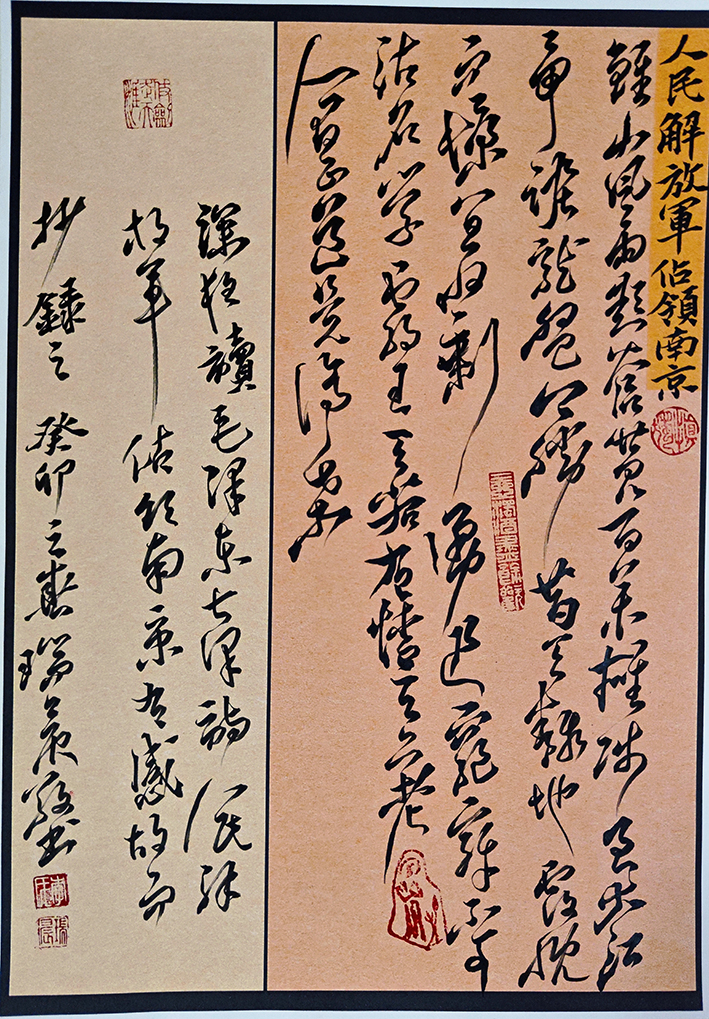 人民解放軍佔領南京
鍾山風雨起蒼黃百萬雄師過大江
虎踞龍盤今勝昔天翻地覆慨
而慷宜將剩勇追窮寇不可
沽名學霸王天若有情天亦老
人間正道是滄桑
深夜讀毛澤東七律詩人民解
放軍佔領南京有感故而
抄錄之癸卯之春瑞晨敬書